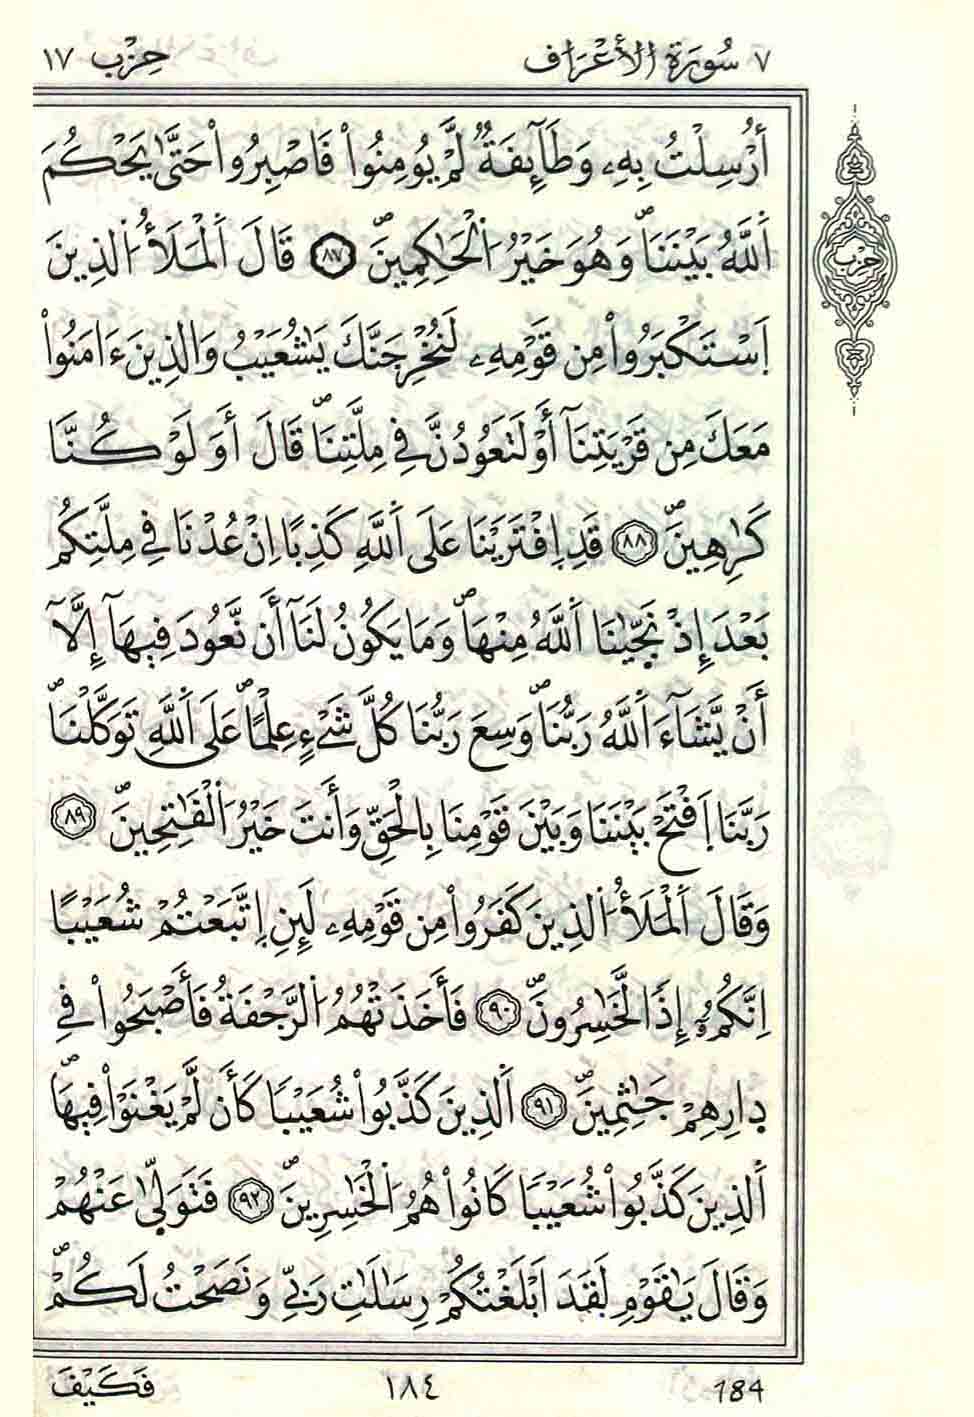 ٧ سُورَةُ الْأَعْرَافِ
حِزْب ١٧
أُرْسِلْتُ بِهِۦ وَطَآئِفَةٌ لَّمْ يُومِنُواْ فَاصْبِرُواْ حَتَّىٰ يَحْكُمَ
حزب
اَ۬للَّهُ بَيْنَنَاۖ وَهُوَ خَيْرُ اُ۬لْحَٰكِمِينَۖ ٨٧ قَالَ اَ۬لْمَلَأُ اُ۬لذِينَ
اَ۪سْتَكْبَرُواْ مِن قَوْمِهِۦ لَنُخْرِجَنَّكَ يَٰشُعَيْبُ وَالذِينَ ءَامَنُواْ
مَعَكَ مِن قَرْيَتِنَآ أَوْ لَتَعُودُنَّ فِے مِلَّتِنَاۖ قَالَ أَوَلَوْ كُنَّا
كَٰرِهِينَۖ ٨٨ قَدِ اِ۪فْتَرَيْنَا عَلَى اَ۬للَّهِ كَذِباً اِنْ عُدْنَا فِے مِلَّتِكُم
بَعْدَ إِذْ نَجَّيٰنَا اَ۬للَّهُ مِنْهَاۖ وَمَا يَكُونُ لَنَآ أَن نَّعُودَ فِيهَآ إِلَّآ
أَنْ يَّشَآءَ اَ۬للَّهُ رَبُّنَاۖ وَسِعَ رَبُّنَا كُلَّ شَےْءٍ عِلْماًۖ عَلَى اَ۬للَّهِ تَوَكَّلْنَاۖ
رَبَّنَا اَ۪فْتَحْ بَيْنَنَا وَبَيْنَ قَوْمِنَا بِالْحَقِّ وَأَنتَ خَيْرُ اُ۬لْفَٰتِحِينَۖ ٨٩
وَقَالَ اَ۬لْمَلَأُ اُ۬لذِينَ كَفَرُواْ مِن قَوْمِهِۦ لَئِنِ اِ۪تَّبَعْتُمْ شُعَيْباً
اِنَّكُمُۥٓ إِذاً لَّخَٰسِرُونَۖ ٩٠ فَأَخَذَتْهُمُ اُ۬لرَّجْفَةُ فَأَصْبَحُواْ فِے
دِارِهِمْ جَٰثِمِينَۖ ٩١ اَ۬لذِينَ كَذَّبُواْ شُعَيْباً كَأَن لَّمْ يَغْنَوْاْ فِيهَاۖ
اَ۬لذِينَ كَذَّبُواْ شُعَيْباً كَانُواْ هُمُ اُ۬لْخَٰسِرِينَۖ ٩٢ فَتَوَلّ۪يٰ عَنْهُمْ
وَقَالَ يَٰقَوْمِ لَقَدَ اَبْلَغْتُكُمْ رِسَٰلَٰتِ رَبِّے وَنَصَحْتُ لَكُمْۖ
184
١٨٤
فَكَيْفَ